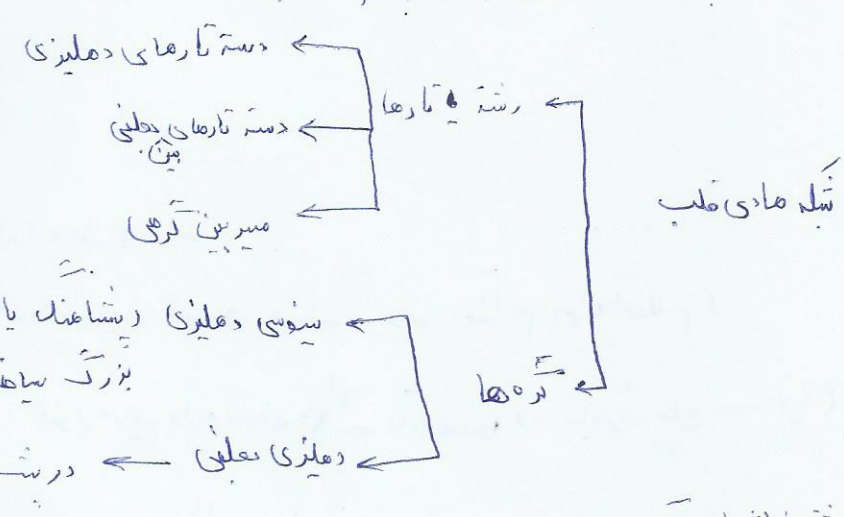 شبکه هادی قلب
رشته یا تارها
دسته تارهای دهلیزی
دسته تارهای بطنی
بین
مسیر بین گرهی
گره ها
سینوسی دهلیزی (پیشاهنگ یا
بزرگ سیاه
دهلیزی بطنی ← در پشت